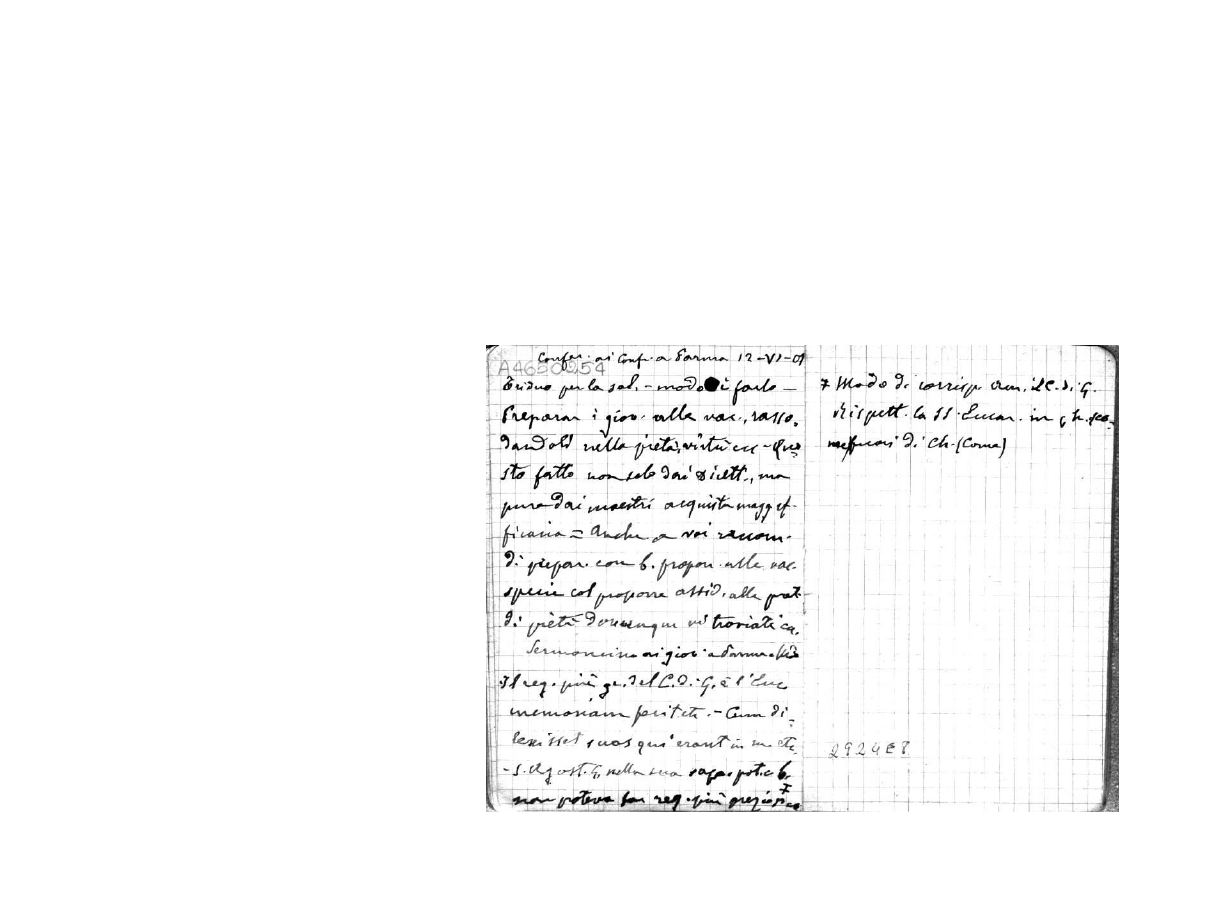 Confer. ai Conf. a Parma 12-VI-07
A4650254
Triduo per la sal. - modo di farlo -
Preparar i giov. alle vac., rasso-
dandoli nella pietà, virtù ecc - Que
sto fatto non solo dai Dirett., ma
pure dai maestri acquista magg ef-
ficacia = Anche a voi raccom.
di prepar. con b. propon. alle vac.
specie col proporre assid. alle prat.
di pietà dovunque vi troviate ca.
Sermoncino ai giov. a Parma
Il reg. più gr. del C. di G. è l'Euc
memoriam fecit etc. - Cum di-
lexisset suos qui erant in m etc.
- S. Agost. nella sua sap. pot. e b.
non poteva far reg. più prezioso
Modo di corrisp. am. il C. di G.
Rispett. la SS. Eucar. in
di Ch. (Come)
2924E8